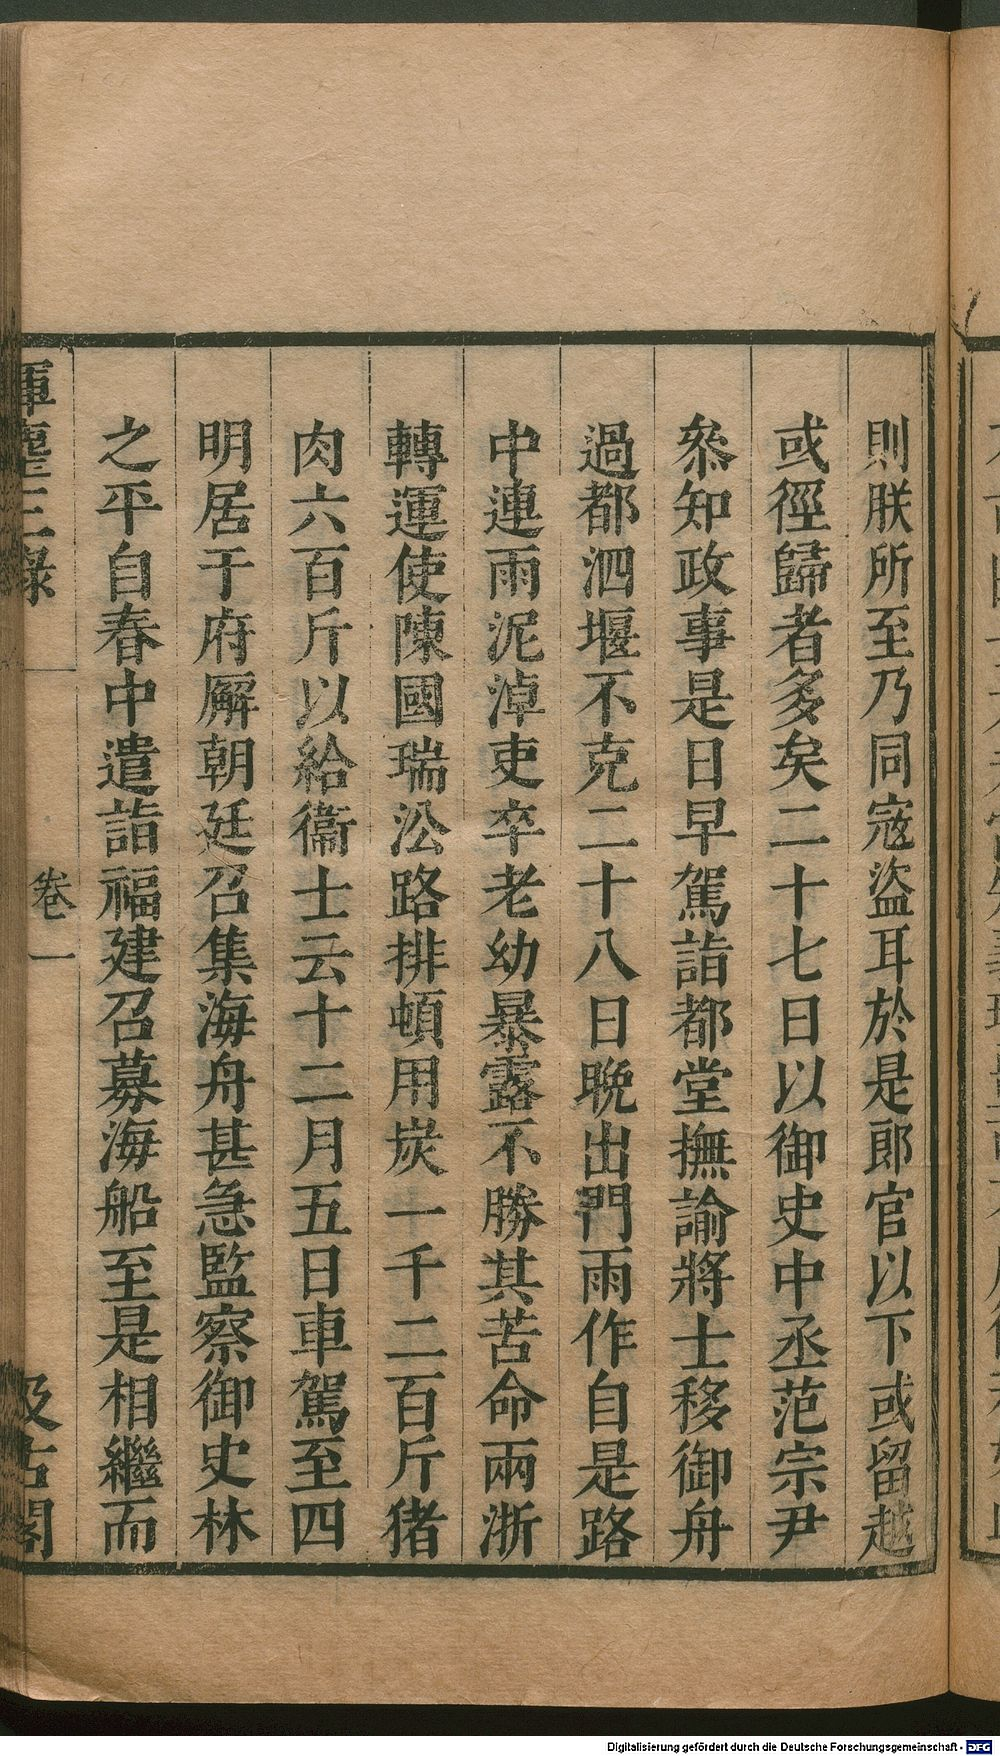 則朕所至乃同寇盜耳於是郎官以下或留越
或徑歸者多矣二十七日以御史中丞范宗尹
叅知政事是日早駕詣都堂撫諭將士移御舟
過都泗堰不克二十八日晚出門雨作自是路
中連雨泥淖吏卒老幼暴露不勝其苦命兩浙
轉運使陳國瑞㳂路排頓用炭一千二百斤猪
肉六百斤以給衞士云十二月五日車駕至四
明居于府廨朝廷召集海舟甚急監察御史林
之平自春中遣詣福建召募海船至是相繼而
揮麈三錄 卷一 汲古閣
Digitalisierung gefördert durch die Deutsche Forschungsgemeinschaft - DFG